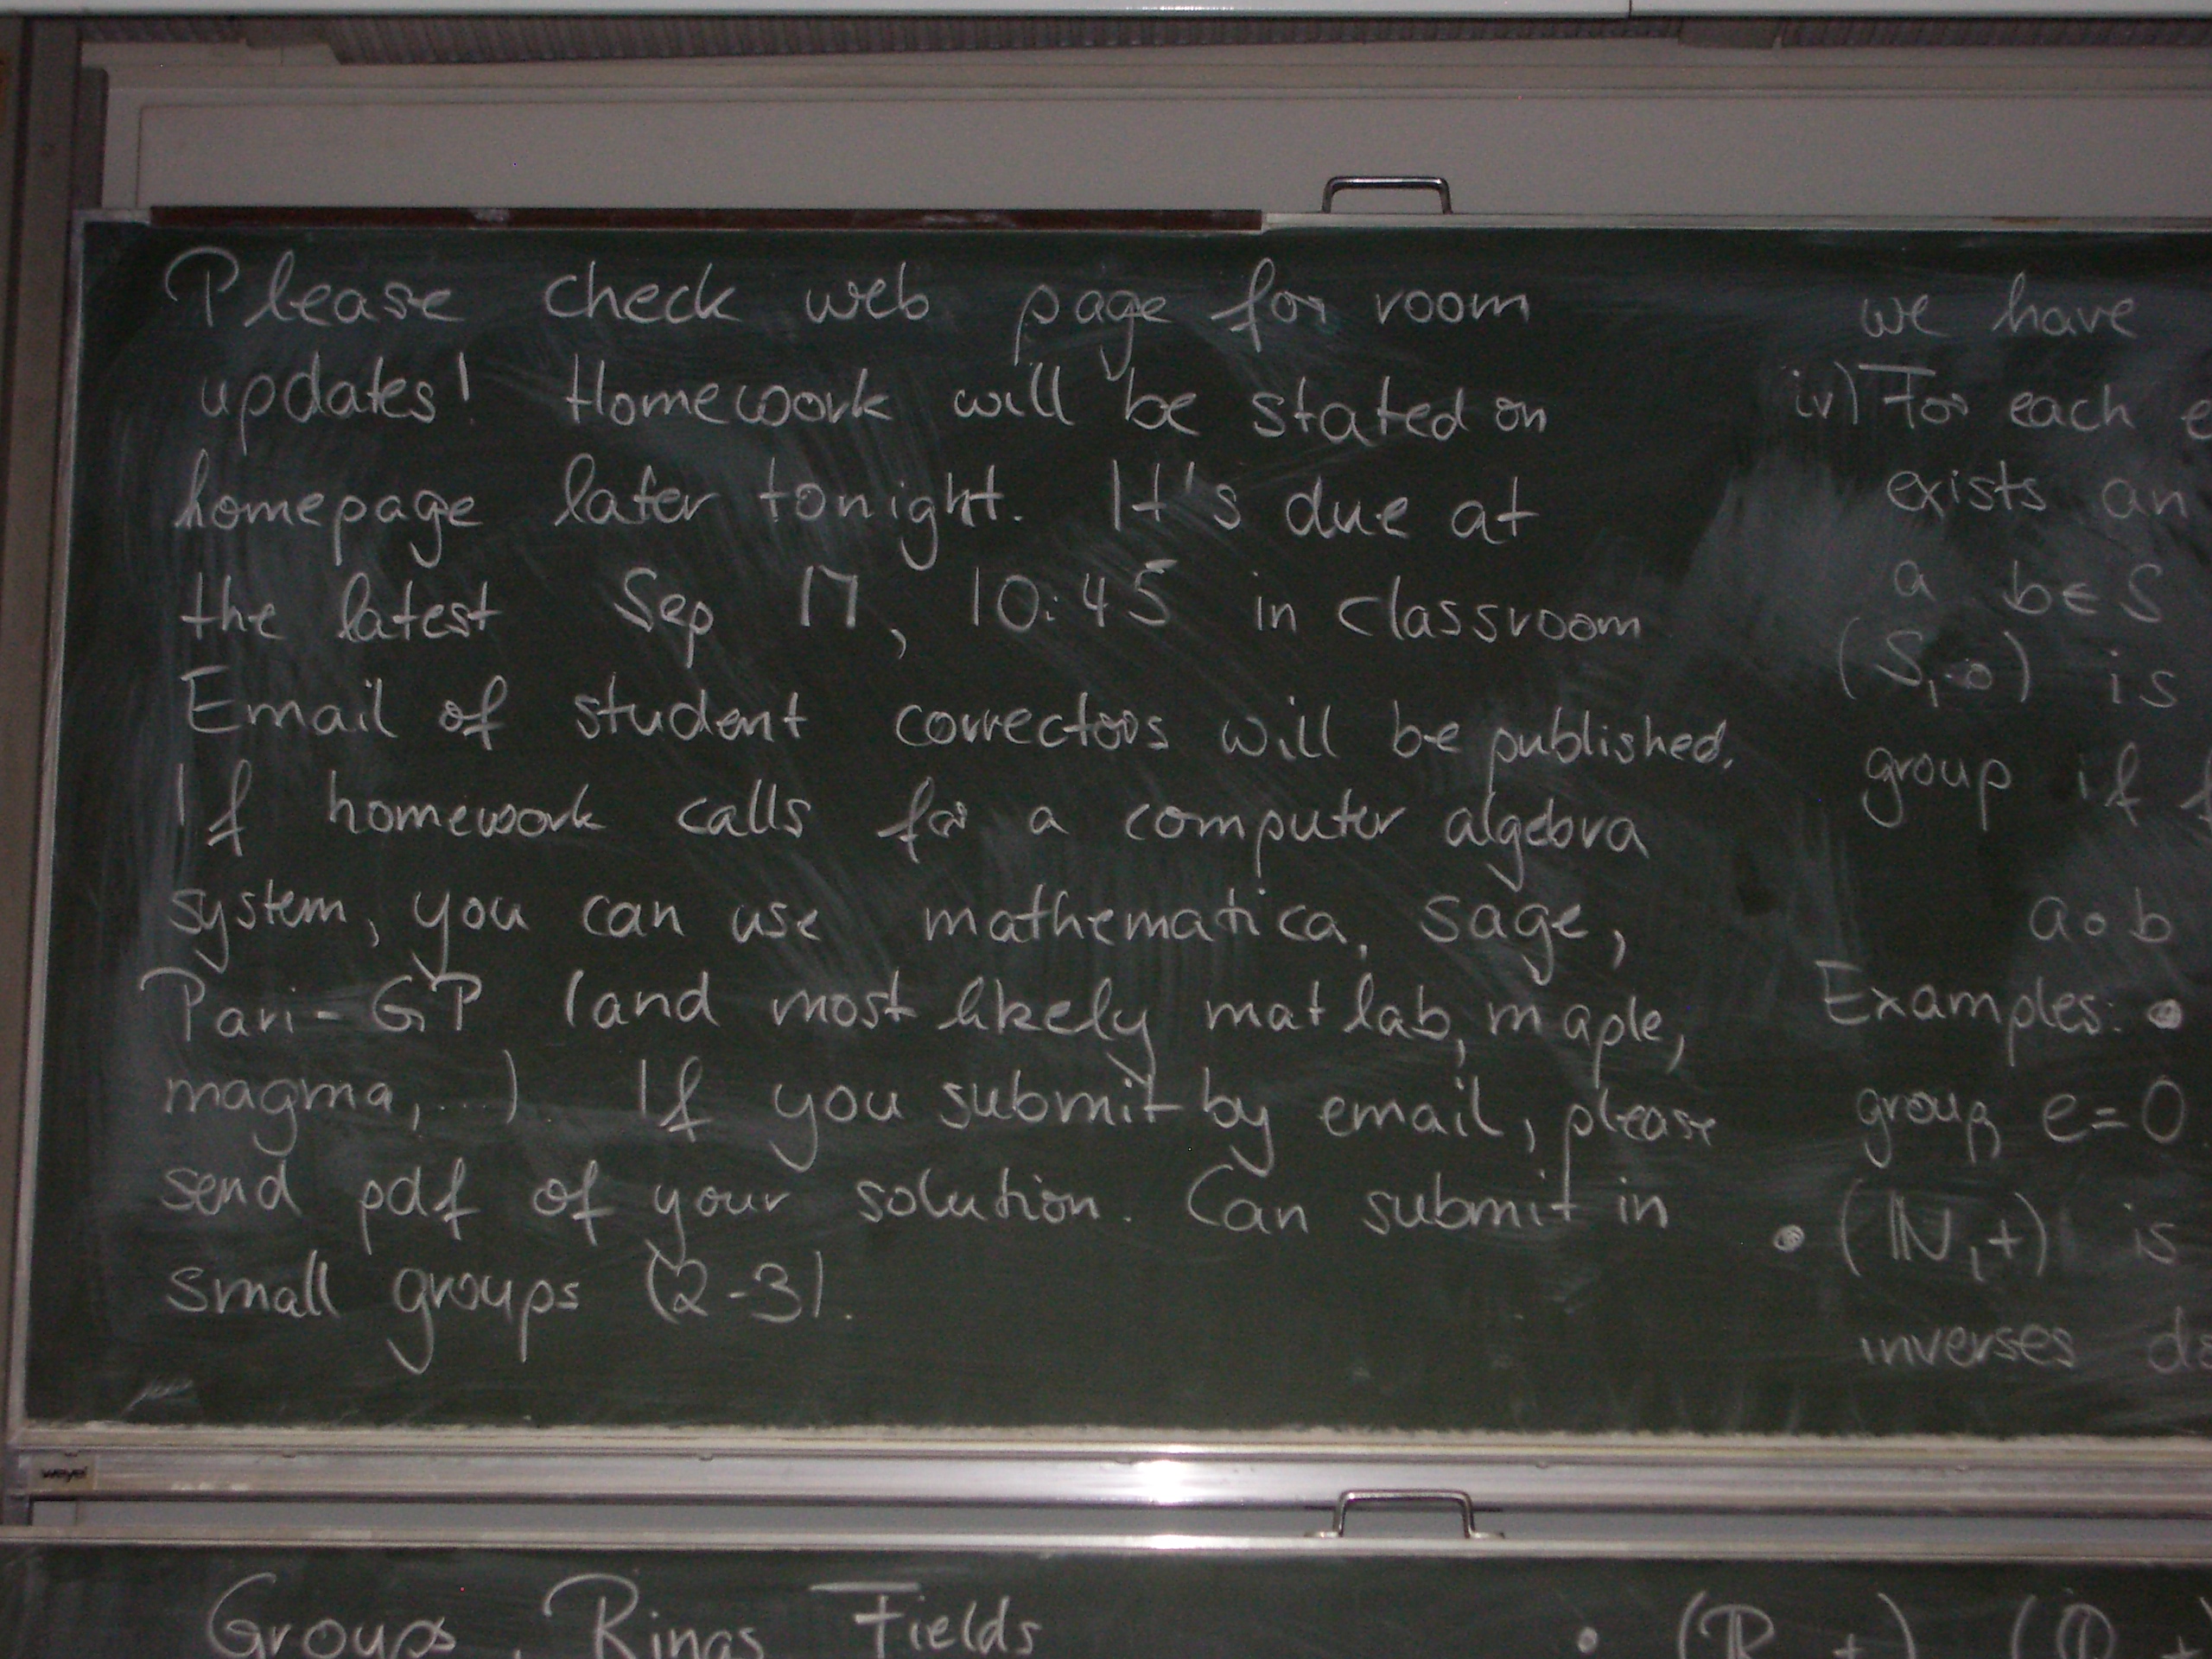 Please check web page for room
updates! Homework will be stated on
homepage later tonight. It's due at
the latest Sep 17, 10:45 in classroom
Email of student correctors will be published.
If homework calls for a computer algebra
system, you can use mathematica, sage,
Pari-GP (and most likely matlab, maple,
magma,...) If you submit by email, please
send pdf of your solution. Can submit in
small groups (2-3).
we have
iv) For each
exists an
a b∈S
(S,∘) is
group if
a∘b
Examples: •
group, e=0
• (ℕ,+) is
inverses
Groups, Rings Fields
• (ℝ +) (ℚ +